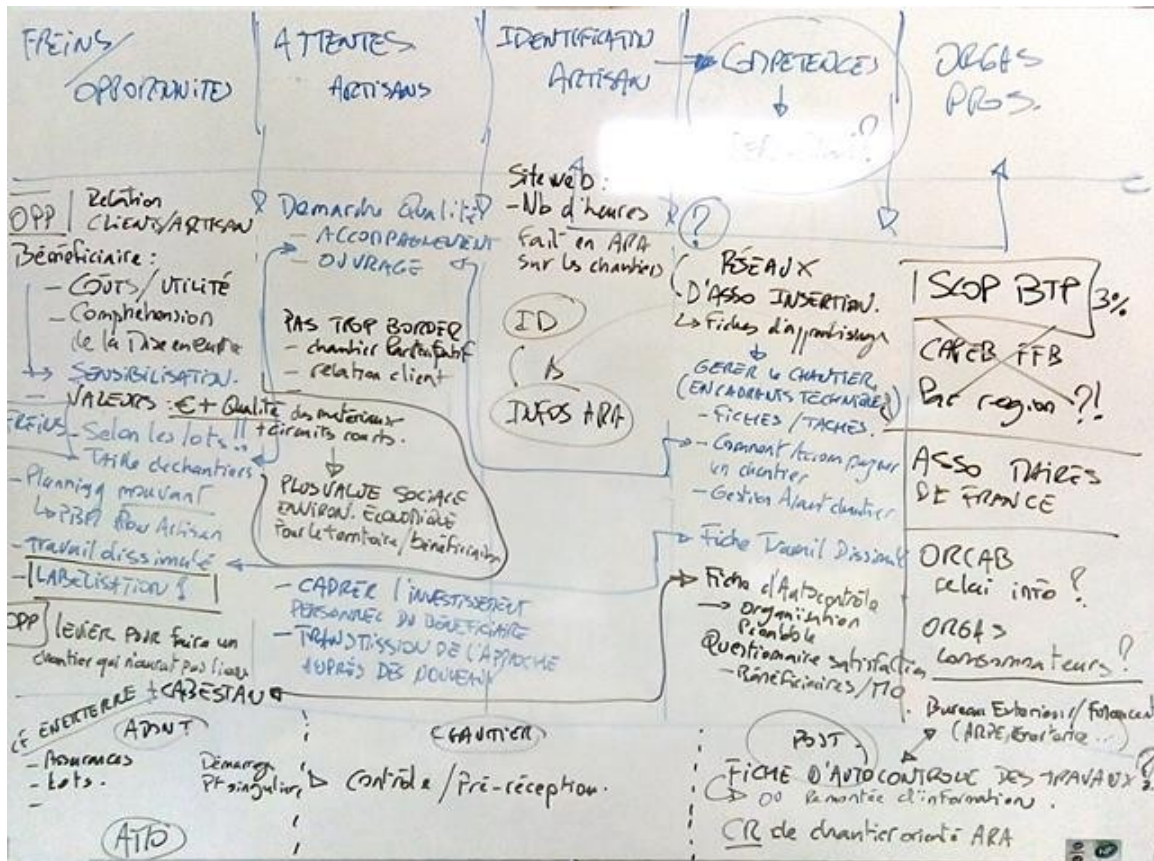 FREINS/
OPPORTUNITES
ATTENTES
ARTISANS
IDENTIFICATION
ARTISAN
COMPETENCES
ORGAS
PROS.
OPP
Relation
CLIENTS/ARTISAN
Bénéficiaire :
- COÛTS/UTILITÉ
- Compréhension
de la Mise en œuvre
SENSIBILISATION.
VALEURS : € + Qualité des matériaux
+ circuits courts.
FREINS
- Selon les lots !!
- Taille de chantiers
- Planning mouvant
↳ PBM pour Artisan
- Travail dissimulé
- LABELISATION ?
OPP
LEVIER POUR faire un
chantier qui n'aurait pas lieu
± CABESTAN
ENERTERRE
Démarche Qualité
- ACCOMPAGNEMENT
- OUVRAGE
PAS TROP BORDER
- chantier Participatif
- relation client
PLUS VALUE SOCIALE
ENVIRON. ÉCONOMIQUE
Pour le territoire/bénéficiaire
- CADRER L'INVESTISSEMENT
PERSONNEL DU BÉNÉFICIAIRE
- TRANSMISSION DE L'APPROCHE
AUPRÈS DES NOUVEAUX
Site web :
- Nb d'heures
Fait en ARA
sur les chantiers
ID
INFOS ARA
?
RÉSEAUX
D'ASSO INSERTION.
↳ Fiches d'apprentissage
GERER LE CHANTIER
(ENCADRANTS TECHNIQUES)
- FICHES / TACHES.
- Comment Accompagner
un chantier
- Gestion Avant chantier
- Fiche Travail Dissimulé
Fiche d'Autocontrôle
→ Organisation
Préalable
Questionnaire satisfaction
- Bénéficiaires/MO
SCOP BTP
3%
CAPEB FFB
Par region ?!
ASSO MAIRES
DE FRANCE
ORCAB
relai info ?
ORGAS
Consommateurs ?
Bureau Exterieurs/
CHANTIER
POST
- Assurances
- Lots.
-
Démarrage
Pt singulier
Contrôle / Pré-réception.
FICHE D'AUTOCONTROLE DES TRAVAUX ?
OU Remontée d'information.
CR de chantier orienté ARA